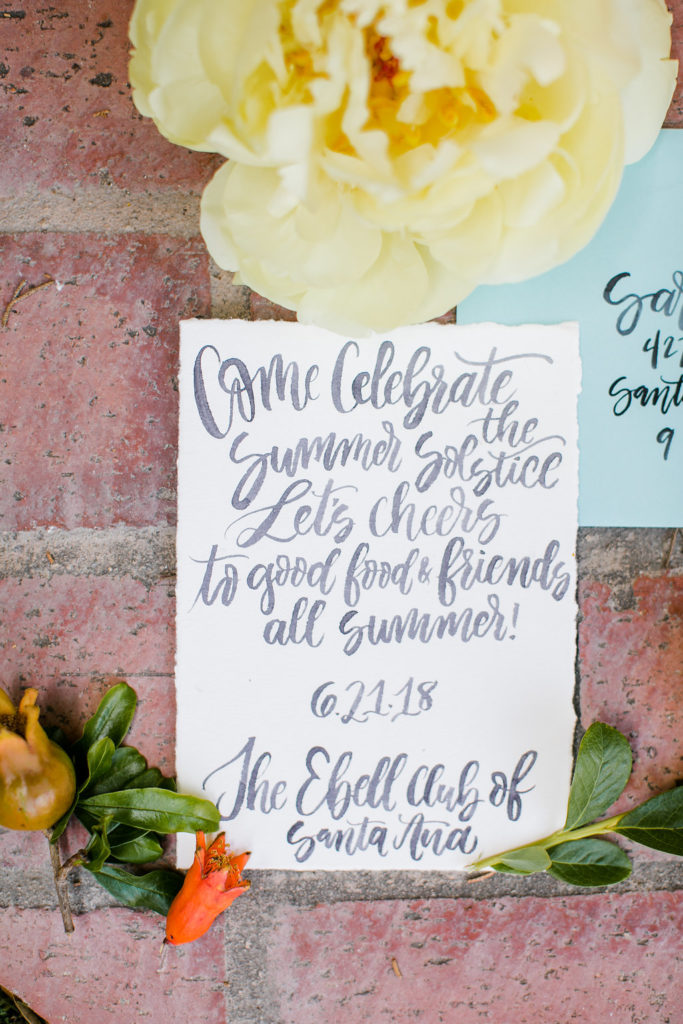 Come Celebrate
the
Summer Solstice
Let's cheers
to good food & friends
all summer!
6.21.18
The Ebell Club of
Santa Ana
Sar
427
Santa
9